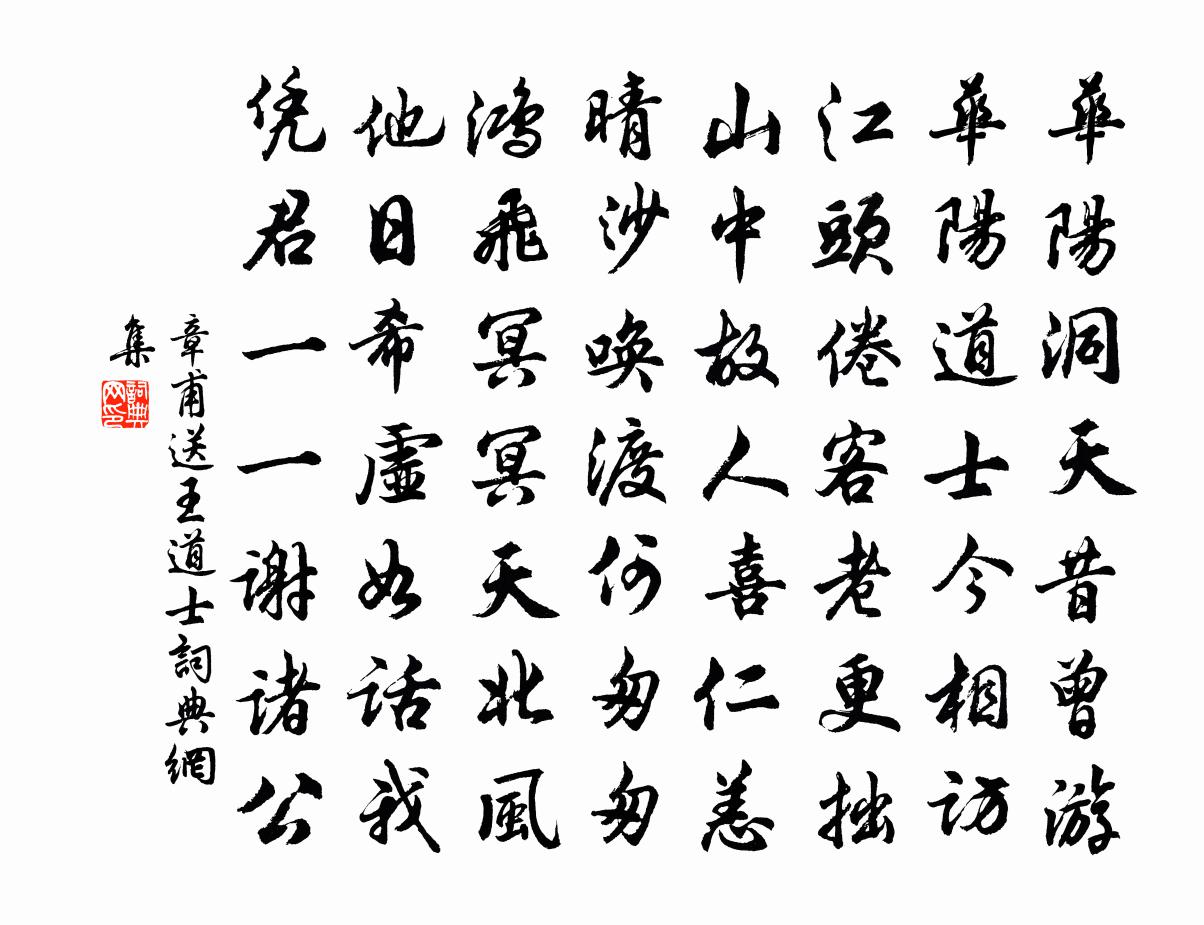 華陽洞天昔曾游
華陽道士今相訪
江頭倦客老更拙
山中故人喜仁恙
晴沙喚渡何匆匆
鴻飛冥冥天北風
他日希虛如話我
凭君一一謝諸公
章甫送王道士詞典網
集
詞典网印